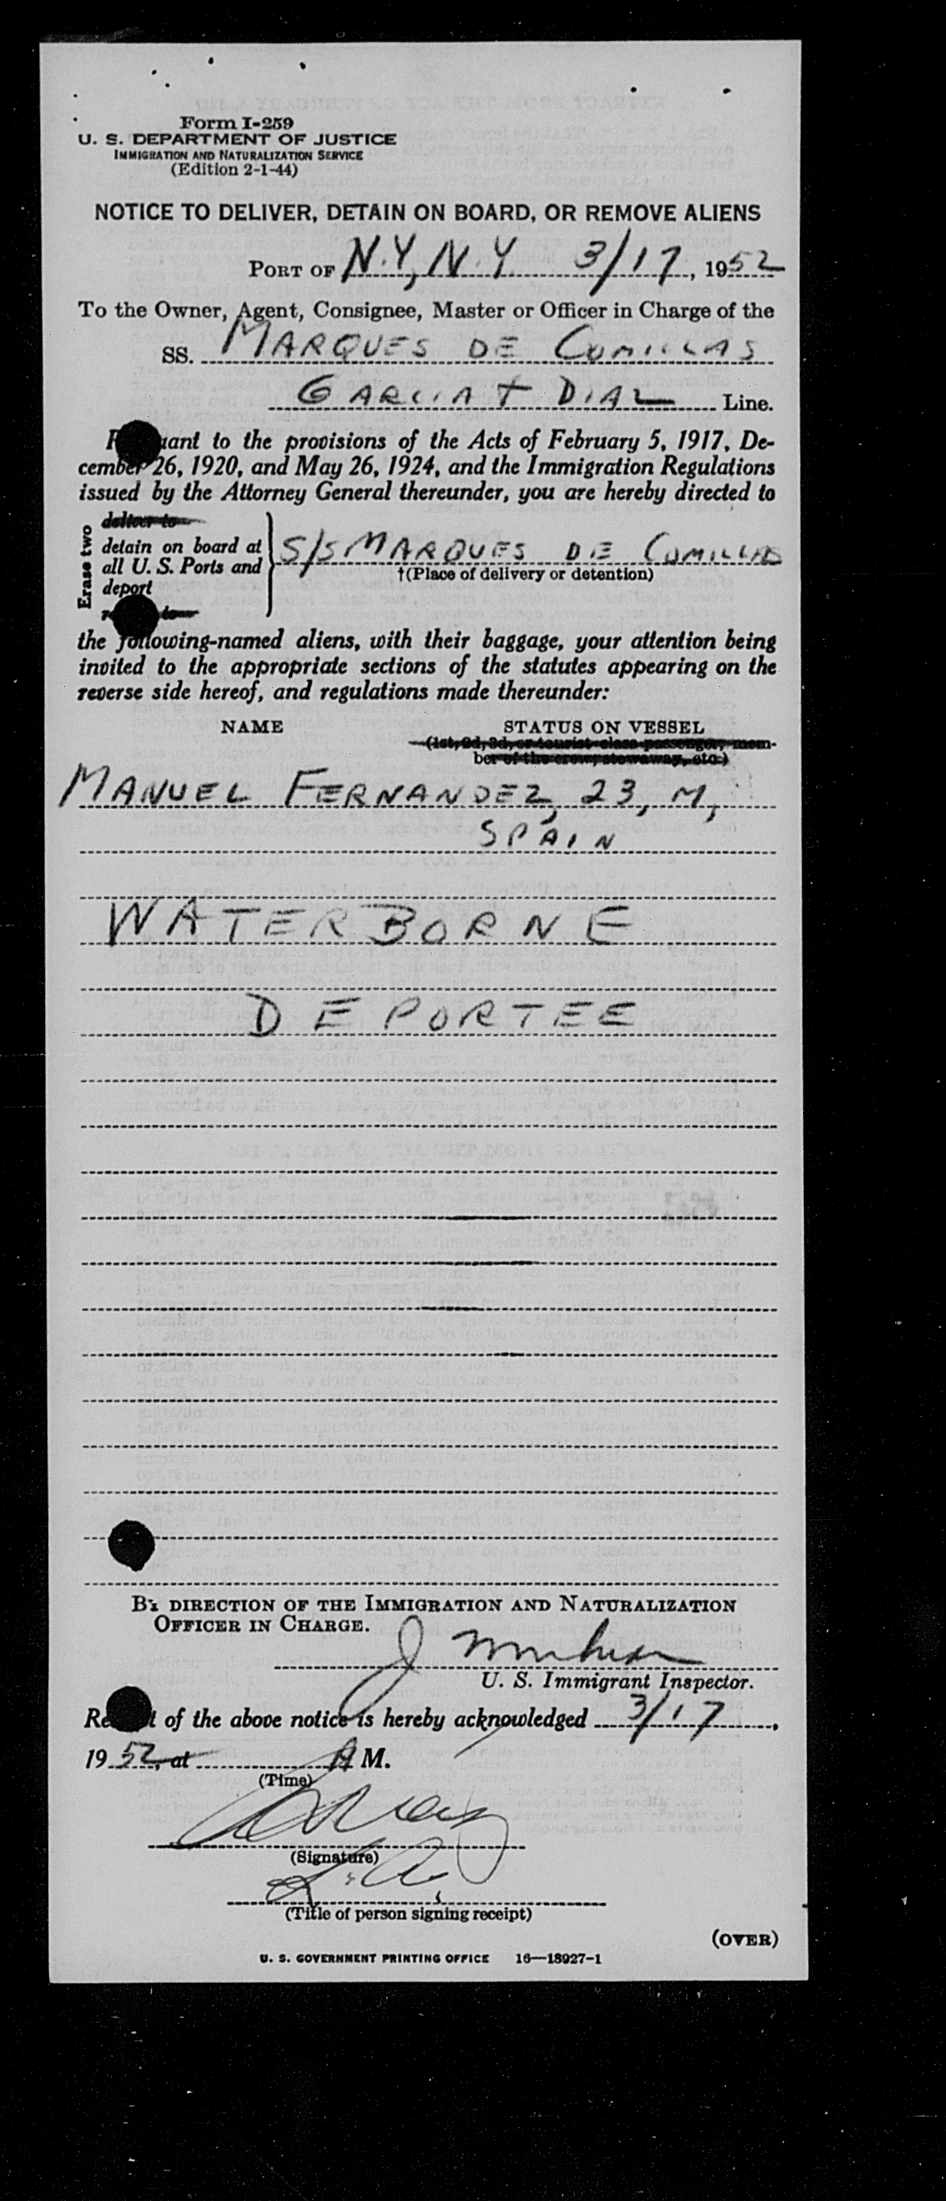 Form I-259
U. S. DEPARTMENT OF JUSTICE
IMMIGRATION AND NATURALIZATION SERVICE
(Edition 2-1-44)
NOTICE TO DELIVER, DETAIN ON BOARD, OR REMOVE ALIENS
PORT OF N.Y, N.Y. 3/17, 1952
To the Owner, Agent, Consignee, Master or Officer in Charge of the
SS. MARQUES DE COMILLAS
GARCIA + DIAZ Line.
to the provisions of the Acts of February 5, 1917, De-
cember 26, 1920, and May 26, 1924, and the Immigration Regulations
issued by the Attorney General thereunder, you are hereby directed to
Erase two
deliver to
detain on board at
all U. S. Ports and
deport
S/S MARQUES DE COMILLAS
†(Place of delivery or detention)
the following-named aliens, with their baggage, your attention being
invited to the appropriate sections of the statutes appearing on the
reverse side hereof, and regulations made thereunder:
NAME STATUS ON VESSEL
(1st, 2d, 3d, or tourist class passenger, mem-
ber of the crew, stowaway, etc.)
MANUEL FERNANDEZ, 23, M,
SPAIN
WATERBORNE
DEPORTEE
By DIRECTION OF THE IMMIGRATION AND NATURALIZATION
OFFICER IN CHARGE.
J
U. S. Immigrant Inspector.
of the above notice is hereby acknowledged 3/17,
1952, at A M.
(Time)
(Signature)
(Title of person signing receipt)
(OVER)
U. S. GOVERNMENT PRINTING OFFICE 16—18927-1